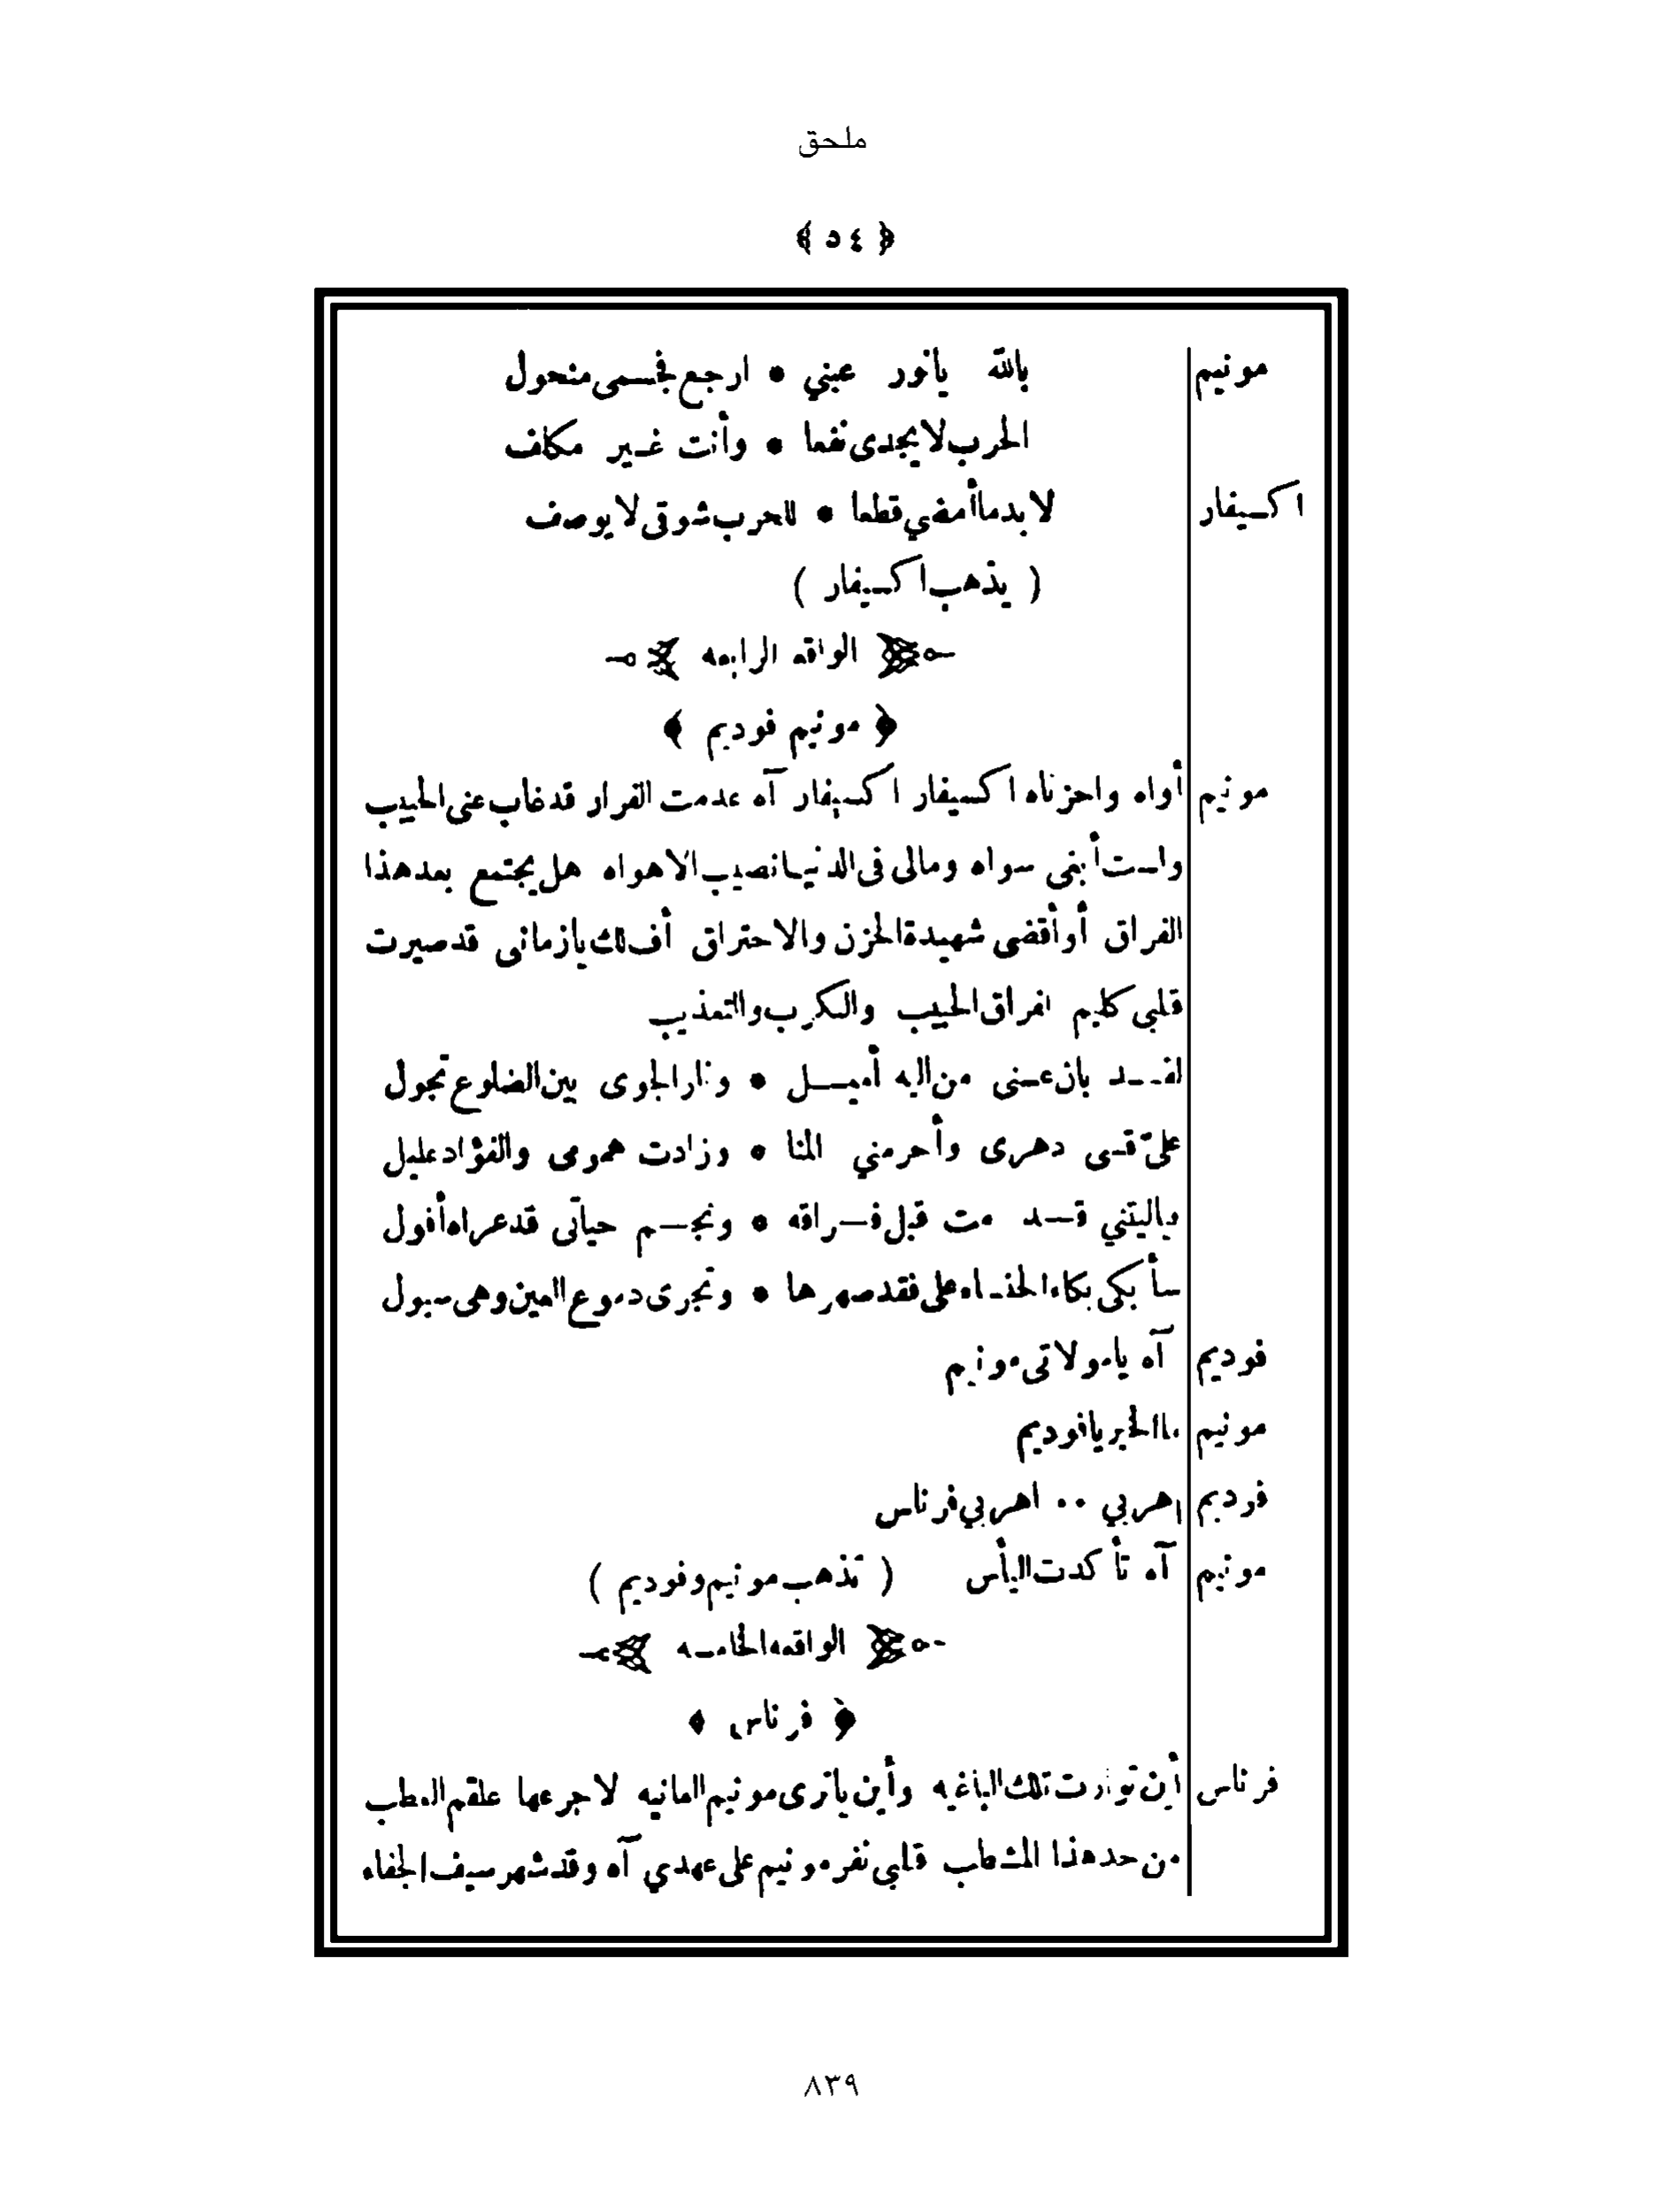 ملحق
﴿ ٥٤ ﴾
مونيم بالله يانور عيني * ارجع فجسمي منحول
الحرب لايجدى نفعا * وأنت غير مكلف
اكسيفار لابدماأمضي قطعا * للحرب شوقى لايوصف
( يذهب اكسيفار )
الواقعه الرابعه
﴿ مونيم فوديم ﴾
مونيم أواه واحزناه اكسيفار اكسيفار آه عدمت القرار قدغاب عنى الحبيب
ولست أبغى سواه ومالى فى الدنيا نصيب الاهواه هل يجتمع بعدهذا
الفراق أوأقضى شهيدة الحزن والاحتراق أف لك يازمانى قدصيرت
قلبى كليم لفراق الحبيب والكرب والتعذيب
لقد بان عنى من اليه أميل * ونار الجوى بين الضلوع تجول
علىّ قسى دهرى وأحرمني المنا * وزادت همومى والفؤاد عليل
ياليتني قد مت قبل فراقه * ونجم حياتى قدعراه أفول
سأبكى بكاء الخنساء على فقد صهرها * وتجرى دموع العين وهى سيول
فوديم آه يامولاتى مونيم
مونيم ماالخبر يافوديم
فوديم اهربي ٠٠ اهربي فرناس
مونيم آه تأكدت اليأس ( تذهب مونيم وفوديم )
الواقعه الخامسه
﴿ فرناس ﴾
فرناس أين توارت تلك الباغيه وأين ياترى مونيم العانيه لاجرعها علقم العطب
من حد هذا المشطب قلبي نفر مونيم على عهدي آه وقد شهر سيف الجفاء
٨٣٩